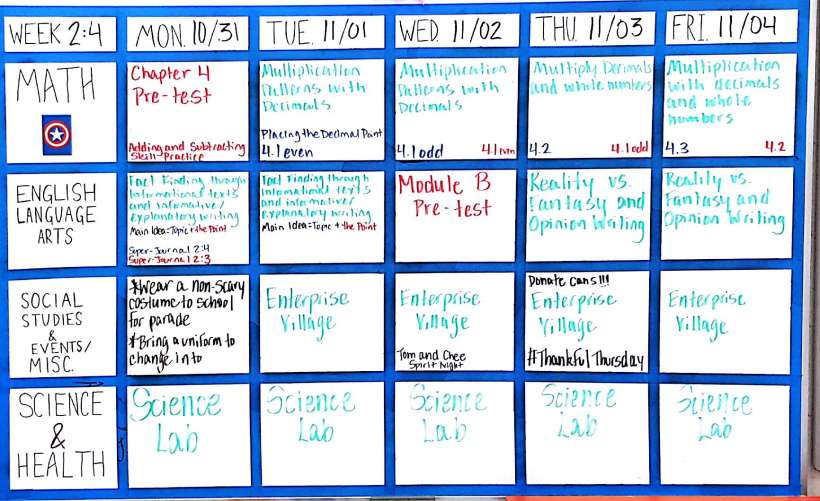 WEEK 2:4
MON. 10/31
TUE. 11/01
WED. 11/02
THU. 11/03
FRI. 11/04
MATH
Chapter 4
Pre-test
Adding and Subtracting
Skill Practice
Multiplication
Patterns with
Decimals
Placing the Decimal Point
4.1 even
Multiplication
Patterns with
Decimals
4.1 odd
4.1 even
Multiply Decimals
and whole numbers
4.2
4.1 odd
Multiplication
with decimals
and whole
numbers
4.3
4.2
ENGLISH
LANGUAGE
ARTS
Fact Finding through
Informational texts
and informative/
explanatory writing
Main Idea=Topic + the Point
Super-Journal 2:4
Super-Journal 2:3
Fact Finding through
Informational texts
and informative/
explanatory writing
Main Idea=Topic + the Point
Module B
Pre-test
Reality vs.
Fantasy and
Opinion Writing
Reality vs.
Fantasy and
Opinion Writing
SOCIAL
STUDIES
&
EVENTS/
MISC.
*Wear a non-scary
costume to school
for parade
*Bring a uniform to
change into
Enterprise
Village
Enterprise
Village
Tom and Chee
Spirit Night
Donate cans!!!
Enterprise
Village
#Thankful Thursday
Enterprise
Village
SCIENCE
&
HEALTH
Science
Lab
Science
Lab
Science
Lab
Science
Lab
Science
Lab